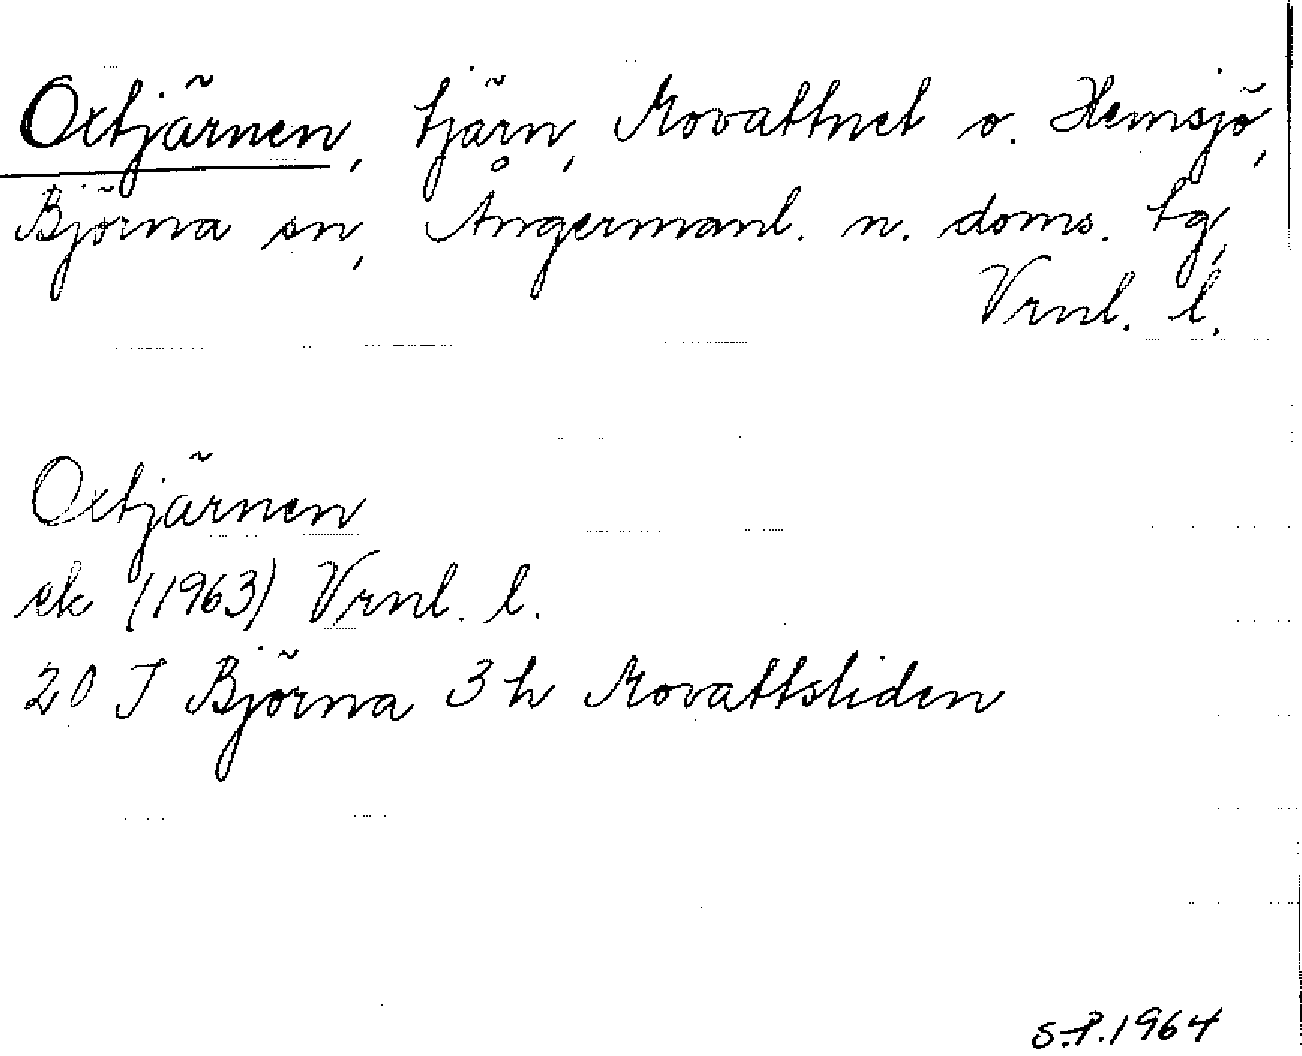 Oxtjärnen, tjärn, Movattnet o. Hemsjö,
Björna sn, Ångermanl. n. doms. tg,
Vrnl. l.
Oxtjärnen
ek (1963) Vrnl. l.
20 J Björna 3 h Movattsliden
S.P. 1964